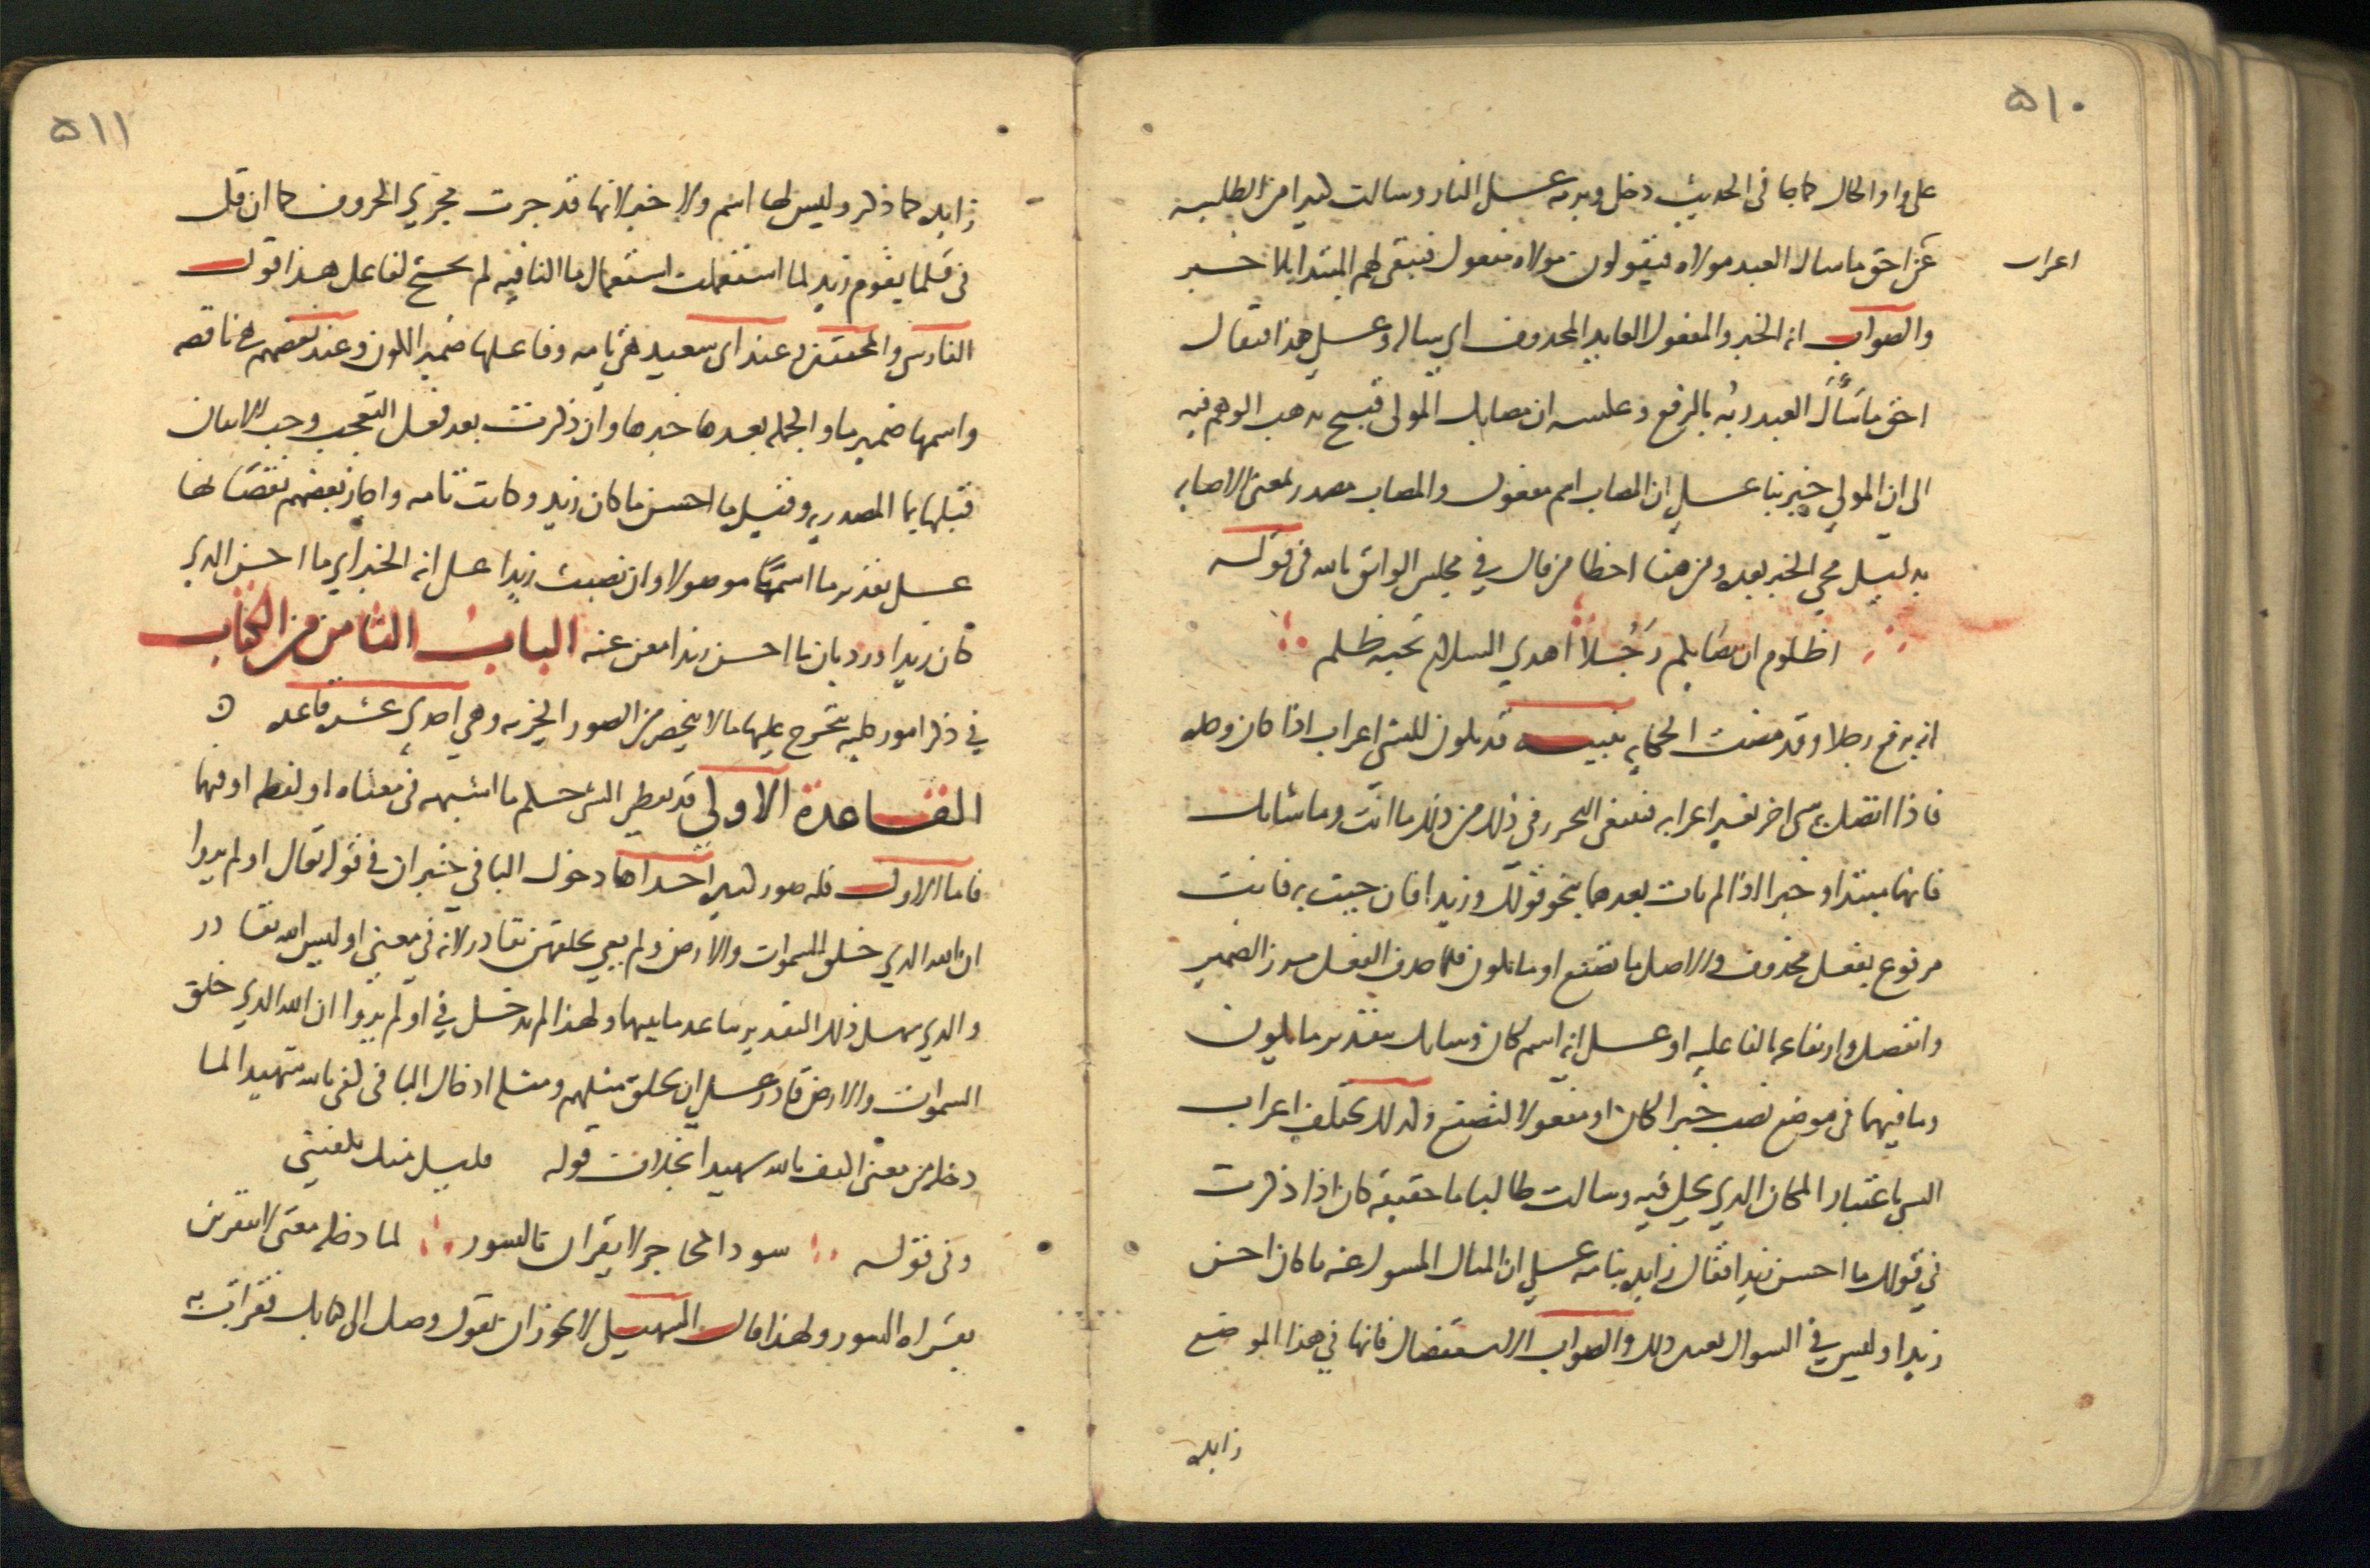 ٥١٠
على واو الحال كما جا فى الحديث دخل وبرمه على النار وسالت كثيرا من الطلبه
اعراب
عن احق ما سال العبد مولاه فيقولون مولاه مفعول فيبقى لهم المبتدا بلا خبر
والصواب انه الخبر والمفعول العايد المحذوف اى سياله وعلى هذا فيقال
احق ما سأل العبد ربُه بالرفع وعكسه ان مصابك المولى قبيح يذهب الوهم فيه
الى ان المولى خبر بنا على ان المصاب اسم مفعول والمصاب مصدر لمعنى الاصابه
بدليل مجى الخبر بعده ومن هنا اخطا من قال في مجلس الواثق بالله فى قوله
اظلوم ان مصابكم رَجُلا اهدى السلام تحيه ظلم
انه برفع رجلا وقد مضت الحكايه تنبيه قد يكون للشى اعراب اذا كان وحده
فاذا اتصل به شى اخر تغير اعرابه فينبغى التحرز فى ذلك من ذلك ما انت وما شانك
فانهما مبتدا وخبر اذا لم يات بعدهما نحو قولك وزيدا فان جيت به فانت
مرفوع بفعل محذوف والاصل ما تصنع او ما تكون فلما حذف الفعل برز الضمير
وانفصل وارتفاعه بالفاعليه او على انه اسم كان وشانك بتقدير ما يكون
وما فيهما فى موضع نصب خبرا لكان او مفعولا لتصنع ولذلك يختلف اعراب
الشى باعتبار المحل الذى يحل فيه وسالت طالبا ما حقيقة كان اذا ذكرت
في قولك ما احسن زيدا فقال زايده بنا منه على ان المثال المسول عنه ما كان احسن
زيدا وليس في السوال تعيين ذلك والصواب الاستفصال فانها في هذا الموضع
زايده
٥١١
زايده كما ذكر وليس لها اسم ولا خبر لانها قد جرت مجرى الحروف كما ان قل
فى قلما يقوم زيد لما استعملت استعمال ما النافيه لم تحتج لفاعل هذا قول
الفارسى والمحققين وعند ابى سعيد هى تامه وفاعلها ضمير الكون وعند بعضهم هى ناقصه
واسمها ضمير ما والجمله بعدها خبرها وان ذكرت بعد فعل التعجب وجب الاتيان
قبلها بما المصدريه وقيل ما احسن ما كان زيد وكانت تامه واجاز بعضهم نقصانها
على تقدير ما اسمًا موصولا وان نصبت زيدا على انه الخبر اى ما احسن الذى
كان زيدا ورد بان ما احسن زيدا مغن عنه الباب الثامن من الكتاب
في ذكر امور كليه يتخرج عليها ما لا ينحصر من الصور الجزيه وهي احدى عشره قاعده
القاعدة الاولى قد يعطى الشى حكم ما اشبهه فى معناه او لفظه او فيهما
فاما الاول فله صور كثيره احداها دخول البا في خبر ان في قوله تعالى اولم يروا
ان الله الذى خلق السموات والارض ولم يعى بخلقهن بقادر لانه فى معنى اوليس الله بقادر
والذى سهل ذلك التقدير تباعد ما بينهما ولهذا لم تدخل فى اولم يروا ان الله الذى خلق
السموات والارض قادر على ان يخلق مثلهم ومثله ادخال البا فى كفى بالله شهيدا لما
دخله من معنى اكتف بالله شهيدا بخلاف قوله قليل منك يكفينى
وفى قوله سود المحاجر لا يقران بالسور لما دخله معنى لا يتقربن
بقراه السور ولهذا قال السهيلى لا يجوز ان تقول وصل الى كتابك فقرات به